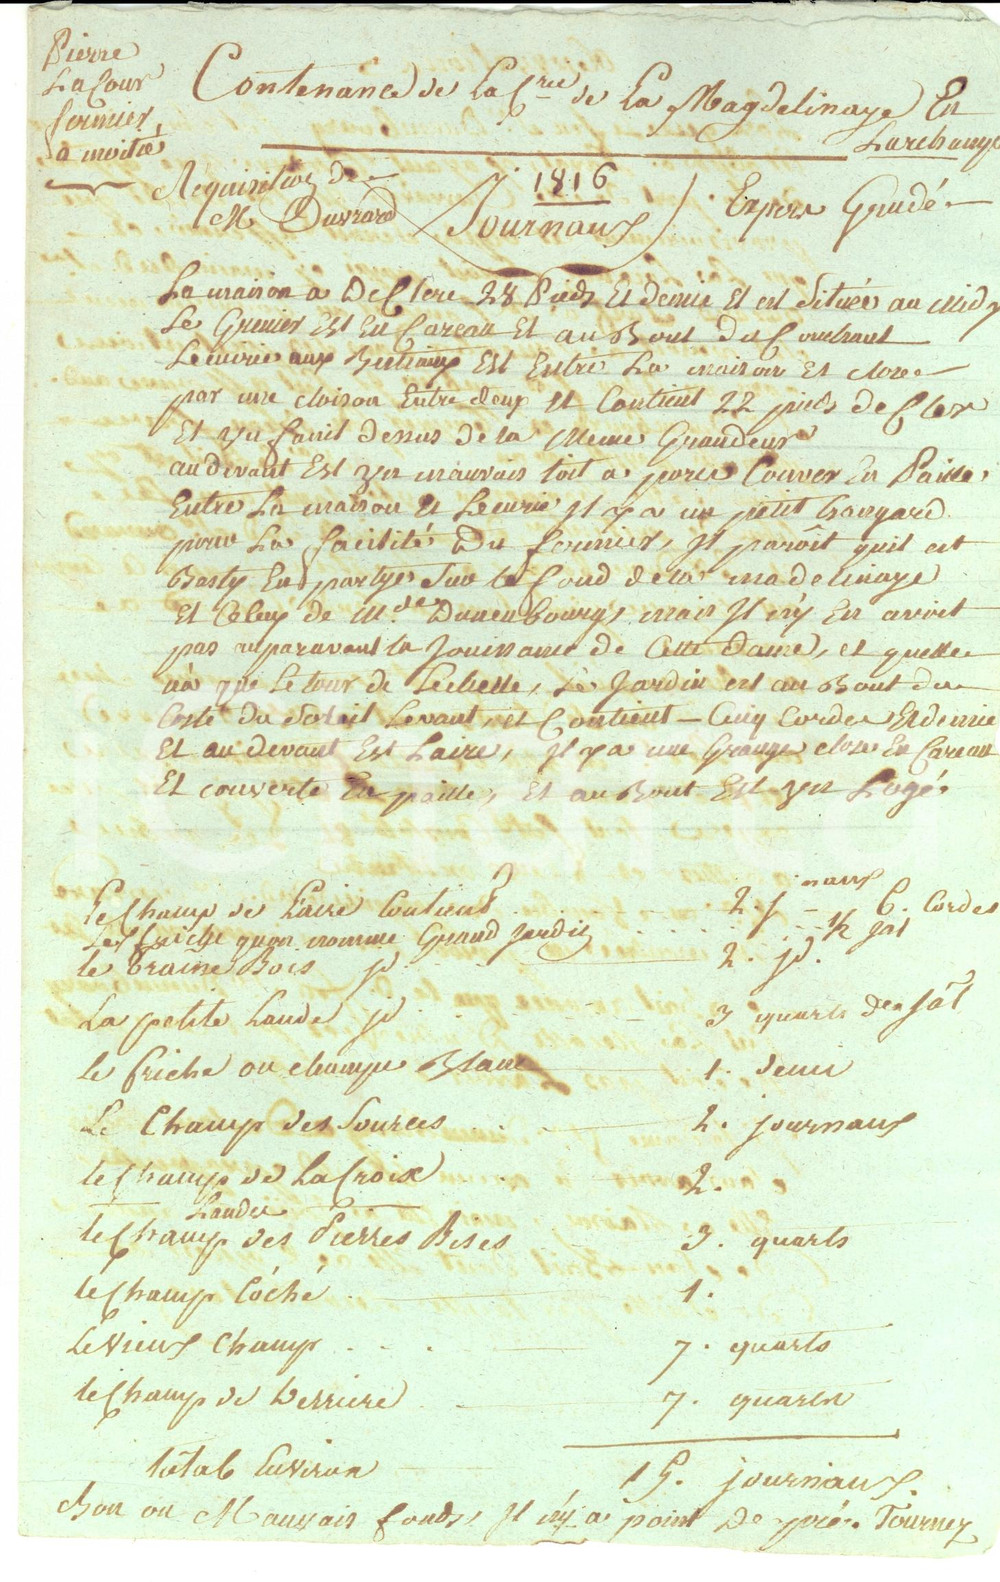 Pierre
La Cour
fermier
a moitié
Contenance de La C.rie de La Magdelinaye En
Larchamp
Acquisition de
M Duvrard
1816
Journaux
Expers Gaudé
La maison a De Clere 28 Pieds Et demie Et est Située au Midy
Le Grenier Est En Careau Et au Bout Du Couchant
Lecurie aux Bestiaux Est Entre La maison Et close
par une cloison Entre deux Et Contient 22 pieds de Cler
Et yn fanil dessus de la Meme Grandeur
au devant Est yn mauvais toit a porcs Couver En Paille,
Entre La maison Et Lecurie Il y a un petit hangard
pour La facilité Du fermier, Il paroît quil est
Basty En partye Sur le fond de la madelinaye
Et Celuy de M.de Dauenbourg, mais Il n'y En avoit
pas auparavant la Jouissance de Cette Dame, et quelle
n'a que Le tour de Lechelle, Le Jardin est au Bout du
Costé du Soleil Levant, et Contient - Cinq Cordes Et demie
Et au devant Est Laire, Il y a une Grange close En Careau
Et couverte En paille, Et au Bout Est yn Logé.
Le Champ de Laire Contient 2. j naux - 6. Cordes
Les friche quon nomme Grand Jardin 1/2 jal
le traine Bois jd 2. jx.
La petite Lande jd 3 quarts de jal
le friche ou champ Blanc 1. demi
Le Champ des Sources 2. journaux
le Champ de La Croix 2.
Landes
le Champ des Pierres Bises 3. quarts
le Champ Cóché 1.
Le vieux Champ 7. quarts
le Champ de Derriere 7. quarts
total Environ 15. journaux.
Bon ou Mauvais fonds, Il n'y a point De pré. Tournez